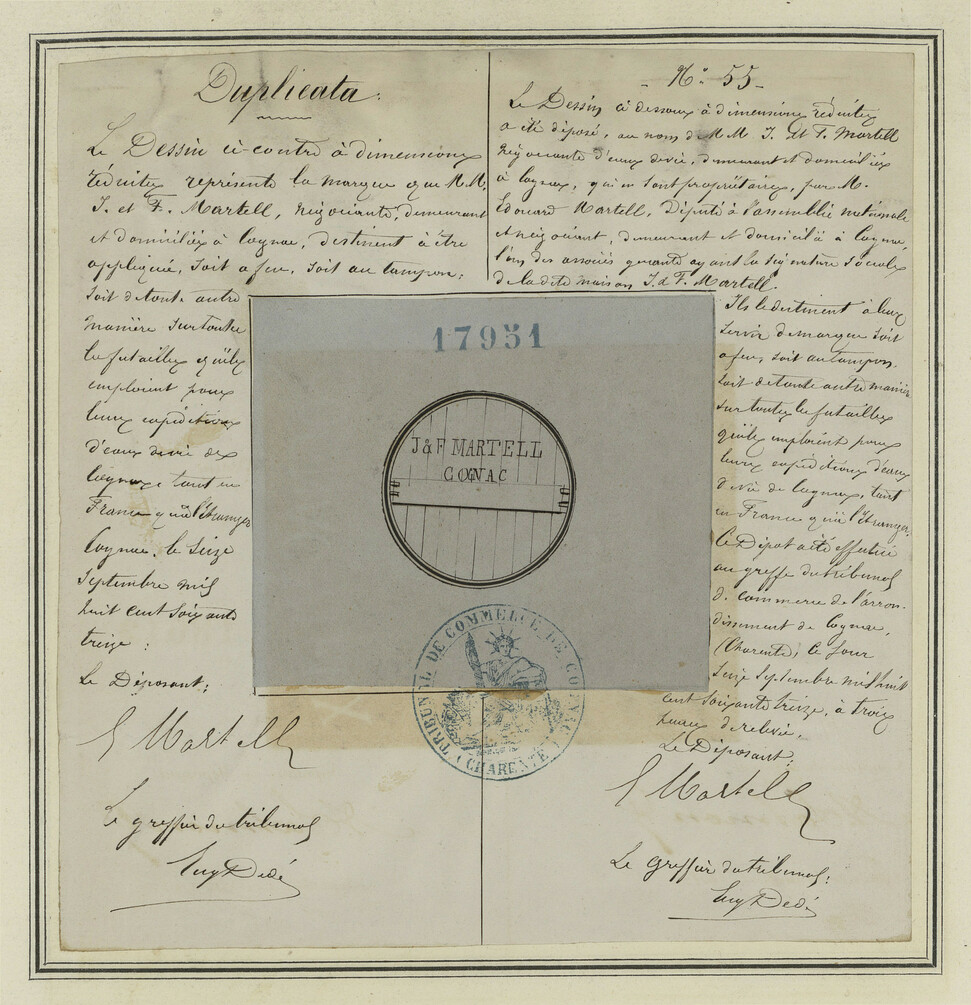 Duplicata :
Le Dessin ci-contre à dimensions
réduites représente la marque que M.M.
J. et F. Martell, négociants, demeurant
et domiciliés à Cognac, destinent à être
appliquée, soit à feu, soit au tampon,
soit de toute autre
manière sur toutes
les futailles qu'ils
emploient pour
leurs expéditions
d'eaux de vie de
Cognac, tant en
France qu'à l'étranger
Cognac, le seize
Septembre mil
huit cent soixante
treize :
Le Déposant :
E Martell
Le greffier du tribunal
Eug Dedé
N.° 55
Le Dessin ci dessous à dimensions réduites
a été déposé, au nom de M M J. et F. Martell
négociants d'eaux de vie, demeurant et domiciliés
à Cognac, qui en sont propriétaires, par M.
Edouard Martell, Député à l'assemblée nationale
et négociant, demeurant et domicilié à Cognac,
l'un des associés gérants ayant la signature sociale
de la dite maison J. & F. Martell.
Ils le destinent à leur
servir de marque soit
à feu, soit au tampon,
soit de toute autre manière
sur toutes les futailles
qu'ils emploient pour
leurs expéditions d'eaux
de vie de Cognac, tant
en France qu'à l'étranger.
Ce Dépot a été effectué
au greffe du tribunal
de commerce de l'arron-
dissement de Cognac,
(Charente) ce jour
seize Septembre mil huit
cent soixante treize, à trois
heures de relevée,
Le Déposant :
E Martell
Le Greffier du tribunal :
Eug Dedé
17951
J & F MARTELL
COGNAC
TRIBUNAL DE COMMERCE DE COGNAC
(CHARENTE)